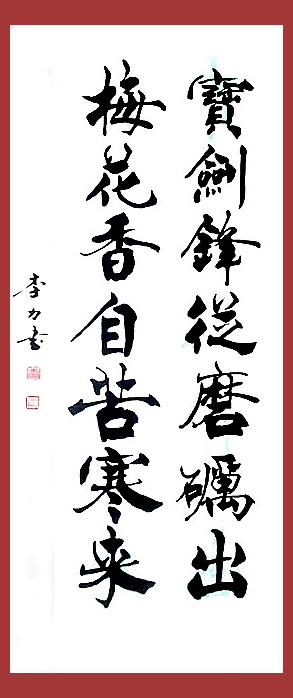 寶劍鋒從磨礪出
梅花香自苦寒来
李力书